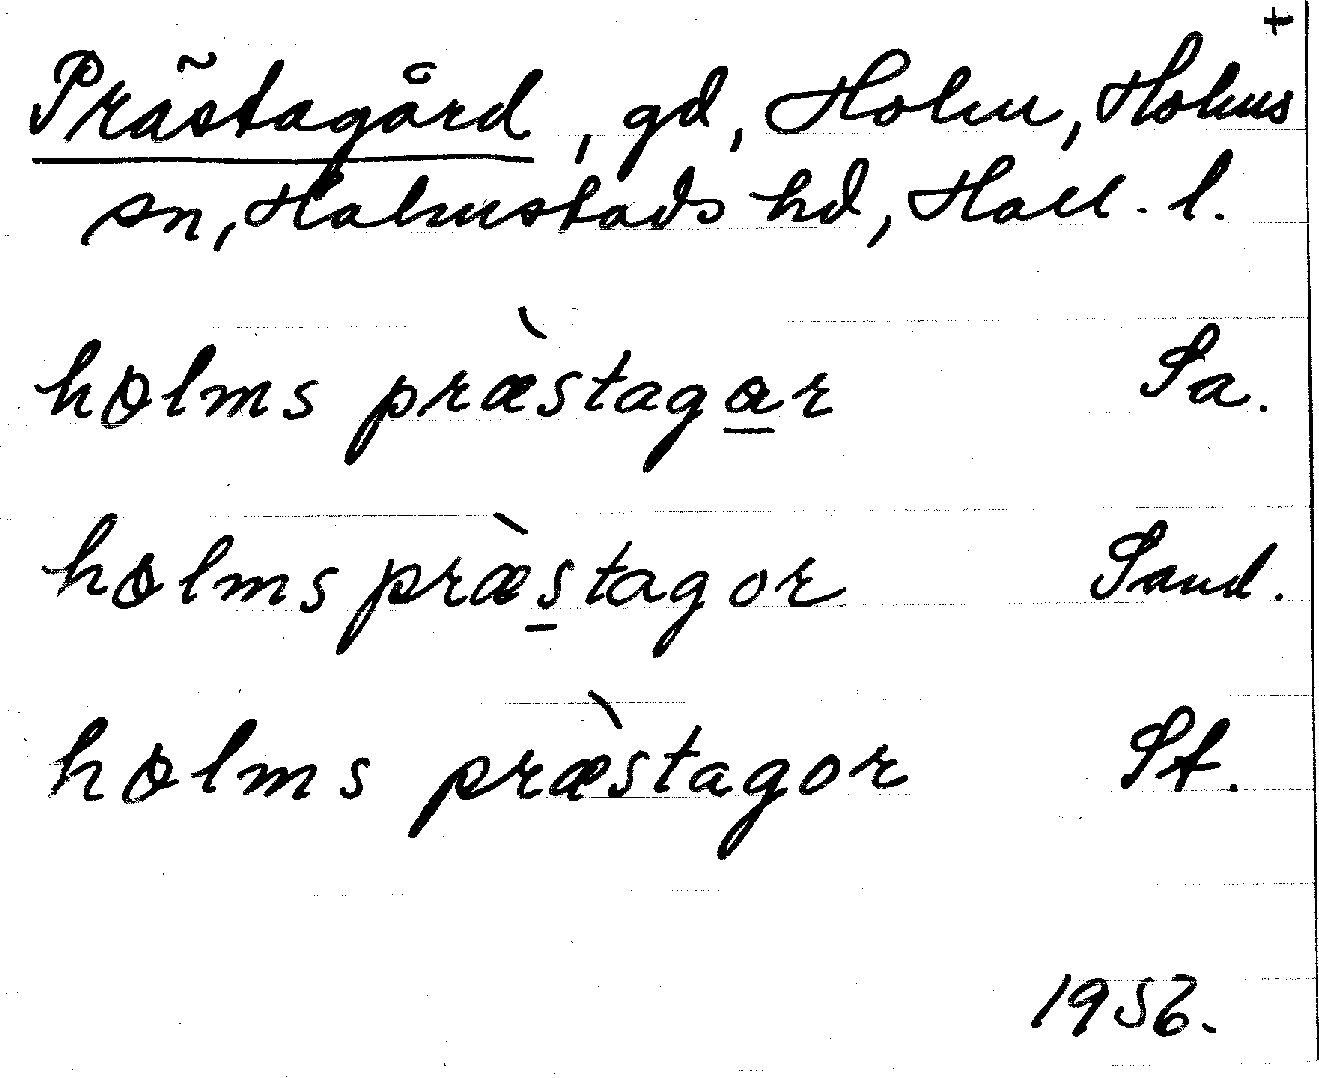 +
Prästagård, gd, Holm, Holms
sn, Halmstads hd, Hall. l.
holms præ̀stagar Sa.
holms præ̀stagor Sand.
holms præ̀stagor St.
1956.